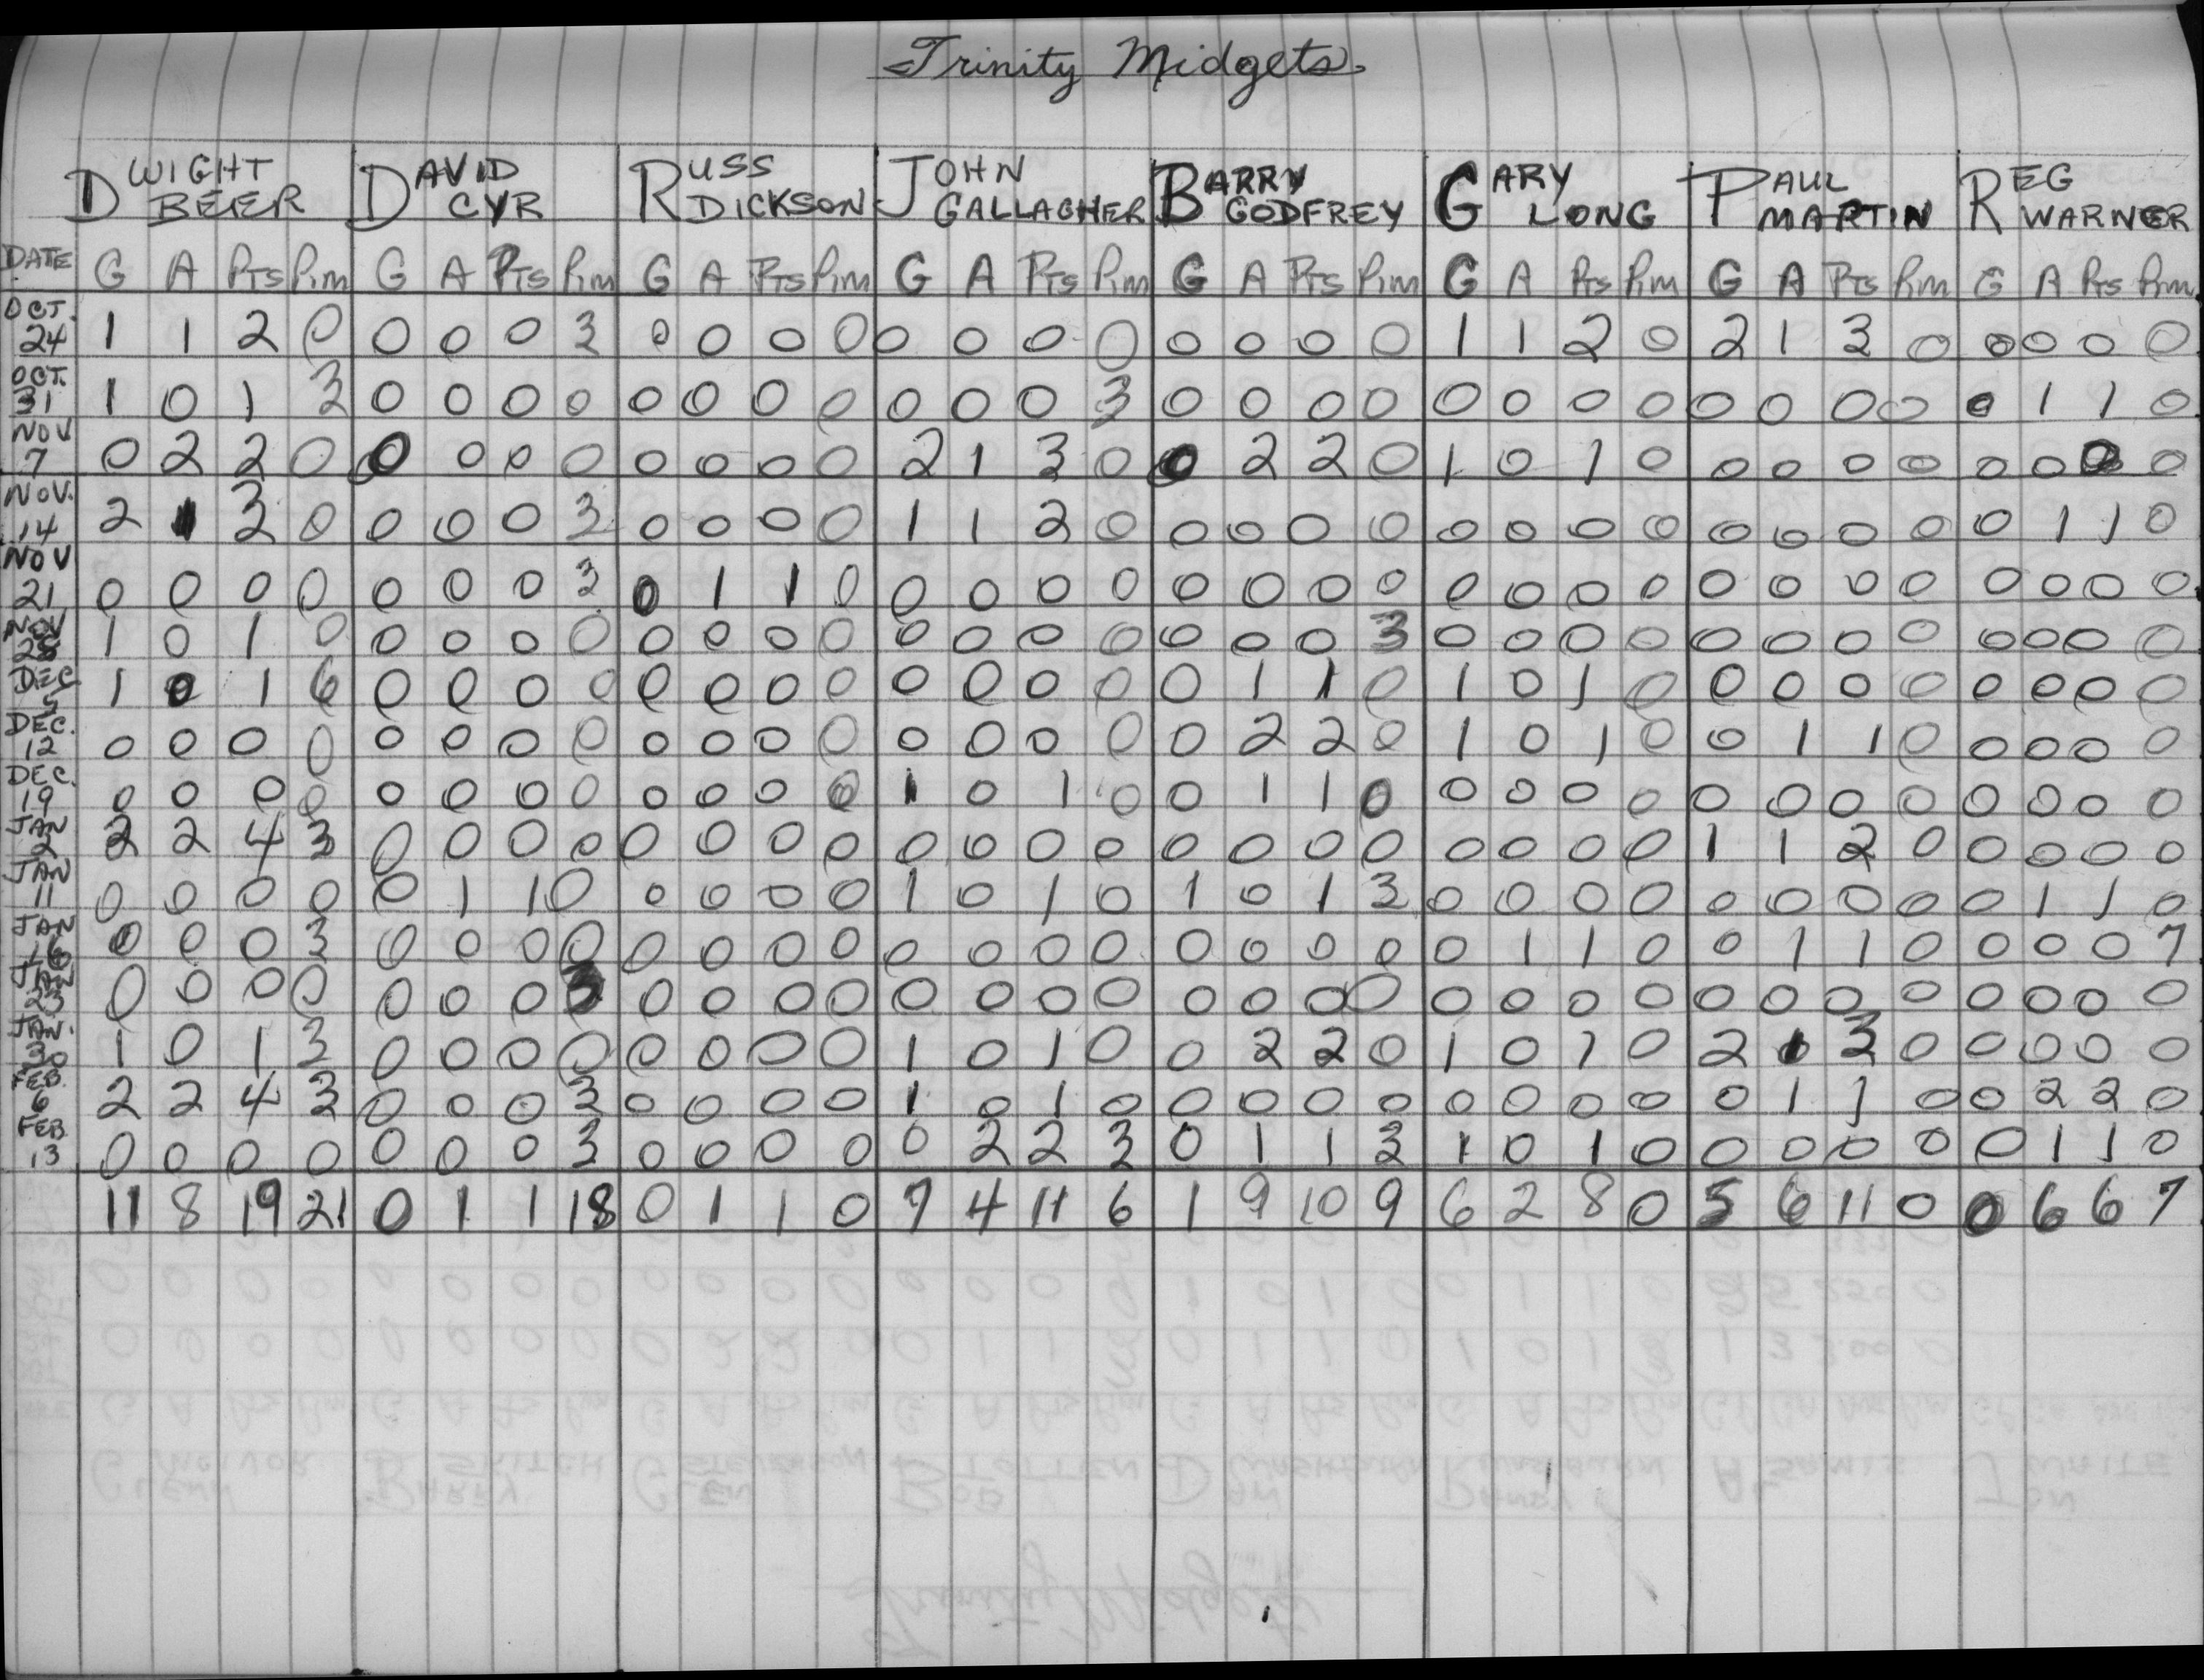 Trinity Midgets
DWIGHT BEER DAVID CYR RUSS DICKSON JOHN GALLAGHER BARRY GODFREY GARY LONG PAUL MARTIN REG WARNER
DATE G A PTS Pim G A PTS Pim G A PTS Pim G A PTS Pim G A PTS Pim G A PTS Pim G A PTS Pim G A PTS Pim
OCT. 24 1 1 2 0 0 0 0 3 0 0 0 0 0 0 0 0 0 0 0 0 1 1 2 0 2 1 3 0 0 0 0 0
OCT. 31 1 0 1 3 0 0 0 0 0 0 0 0 0 0 0 3 0 0 0 0 0 0 0 0 0 0 0 0 0 1 1 0
NOV 7 0 2 2 0 0 0 0 0 0 0 0 0 2 1 3 0 0 2 2 0 1 0 1 0 0 0 0 0 0 0 0 0
NOV. 14 2 1 3 0 0 0 0 3 0 0 0 0 1 1 2 0 0 0 0 0 0 0 0 0 0 0 0 0 0 1 1 0
NOV 21 0 0 0 0 0 0 0 3 0 1 1 0 0 0 0 0 0 0 0 0 0 0 0 0 0 0 0 0 0 0 0 0
NOV 28 1 0 1 0 0 0 0 0 0 0 0 0 0 0 0 0 0 0 0 3 0 0 0 0 0 0 0 0 0 0 0 0
DEC 5 1 0 1 6 0 0 0 0 0 0 0 0 0 0 0 0 0 1 1 0 1 0 1 0 0 0 0 0 0 0 0 0
DEC. 12 0 0 0 0 0 0 0 0 0 0 0 0 0 0 0 0 0 2 2 0 1 0 1 0 0 1 1 0 0 0 0 0
DEC. 19 0 0 0 0 0 0 0 0 0 0 0 0 1 0 1 0 0 1 1 0 0 0 0 0 0 0 0 0 0 0 0 0
JAN 2 2 2 4 3 0 0 0 0 0 0 0 0 0 0 0 0 0 0 0 0 0 0 0 0 1 1 2 0 0 0 0 0
JAN 11 0 0 0 0 0 1 1 0 0 0 0 0 1 0 1 0 1 0 1 3 0 0 0 0 0 0 0 0 0 1 1 0
JAN 16 0 0 0 3 0 0 0 0 0 0 0 0 0 0 0 0 0 0 0 0 0 1 1 0 0 1 1 0 0 0 0 7
JAN 23 0 0 0 0 0 0 0 3 0 0 0 0 0 0 0 0 0 0 0 0 0 0 0 0 0 0 0 0 0 0 0 0
JAN. 30 1 0 1 3 0 0 0 0 0 0 0 0 1 0 1 0 0 2 2 0 1 0 1 0 2 1 3 0 0 0 0 0
FEB. 6 2 2 4 3 0 0 0 3 0 0 0 0 1 0 1 0 0 0 0 0 0 0 0 0 0 1 1 0 0 2 2 0
FEB. 13 0 0 0 0 0 0 0 3 0 0 0 0 0 2 2 3 0 1 1 3 1 0 1 0 0 0 0 0 0 1 1 0
11 8 19 21 0 1 1 18 0 1 1 0 7 4 11 6 1 9 10 9 6 2 8 0 5 6 11 0 0 6 6 7